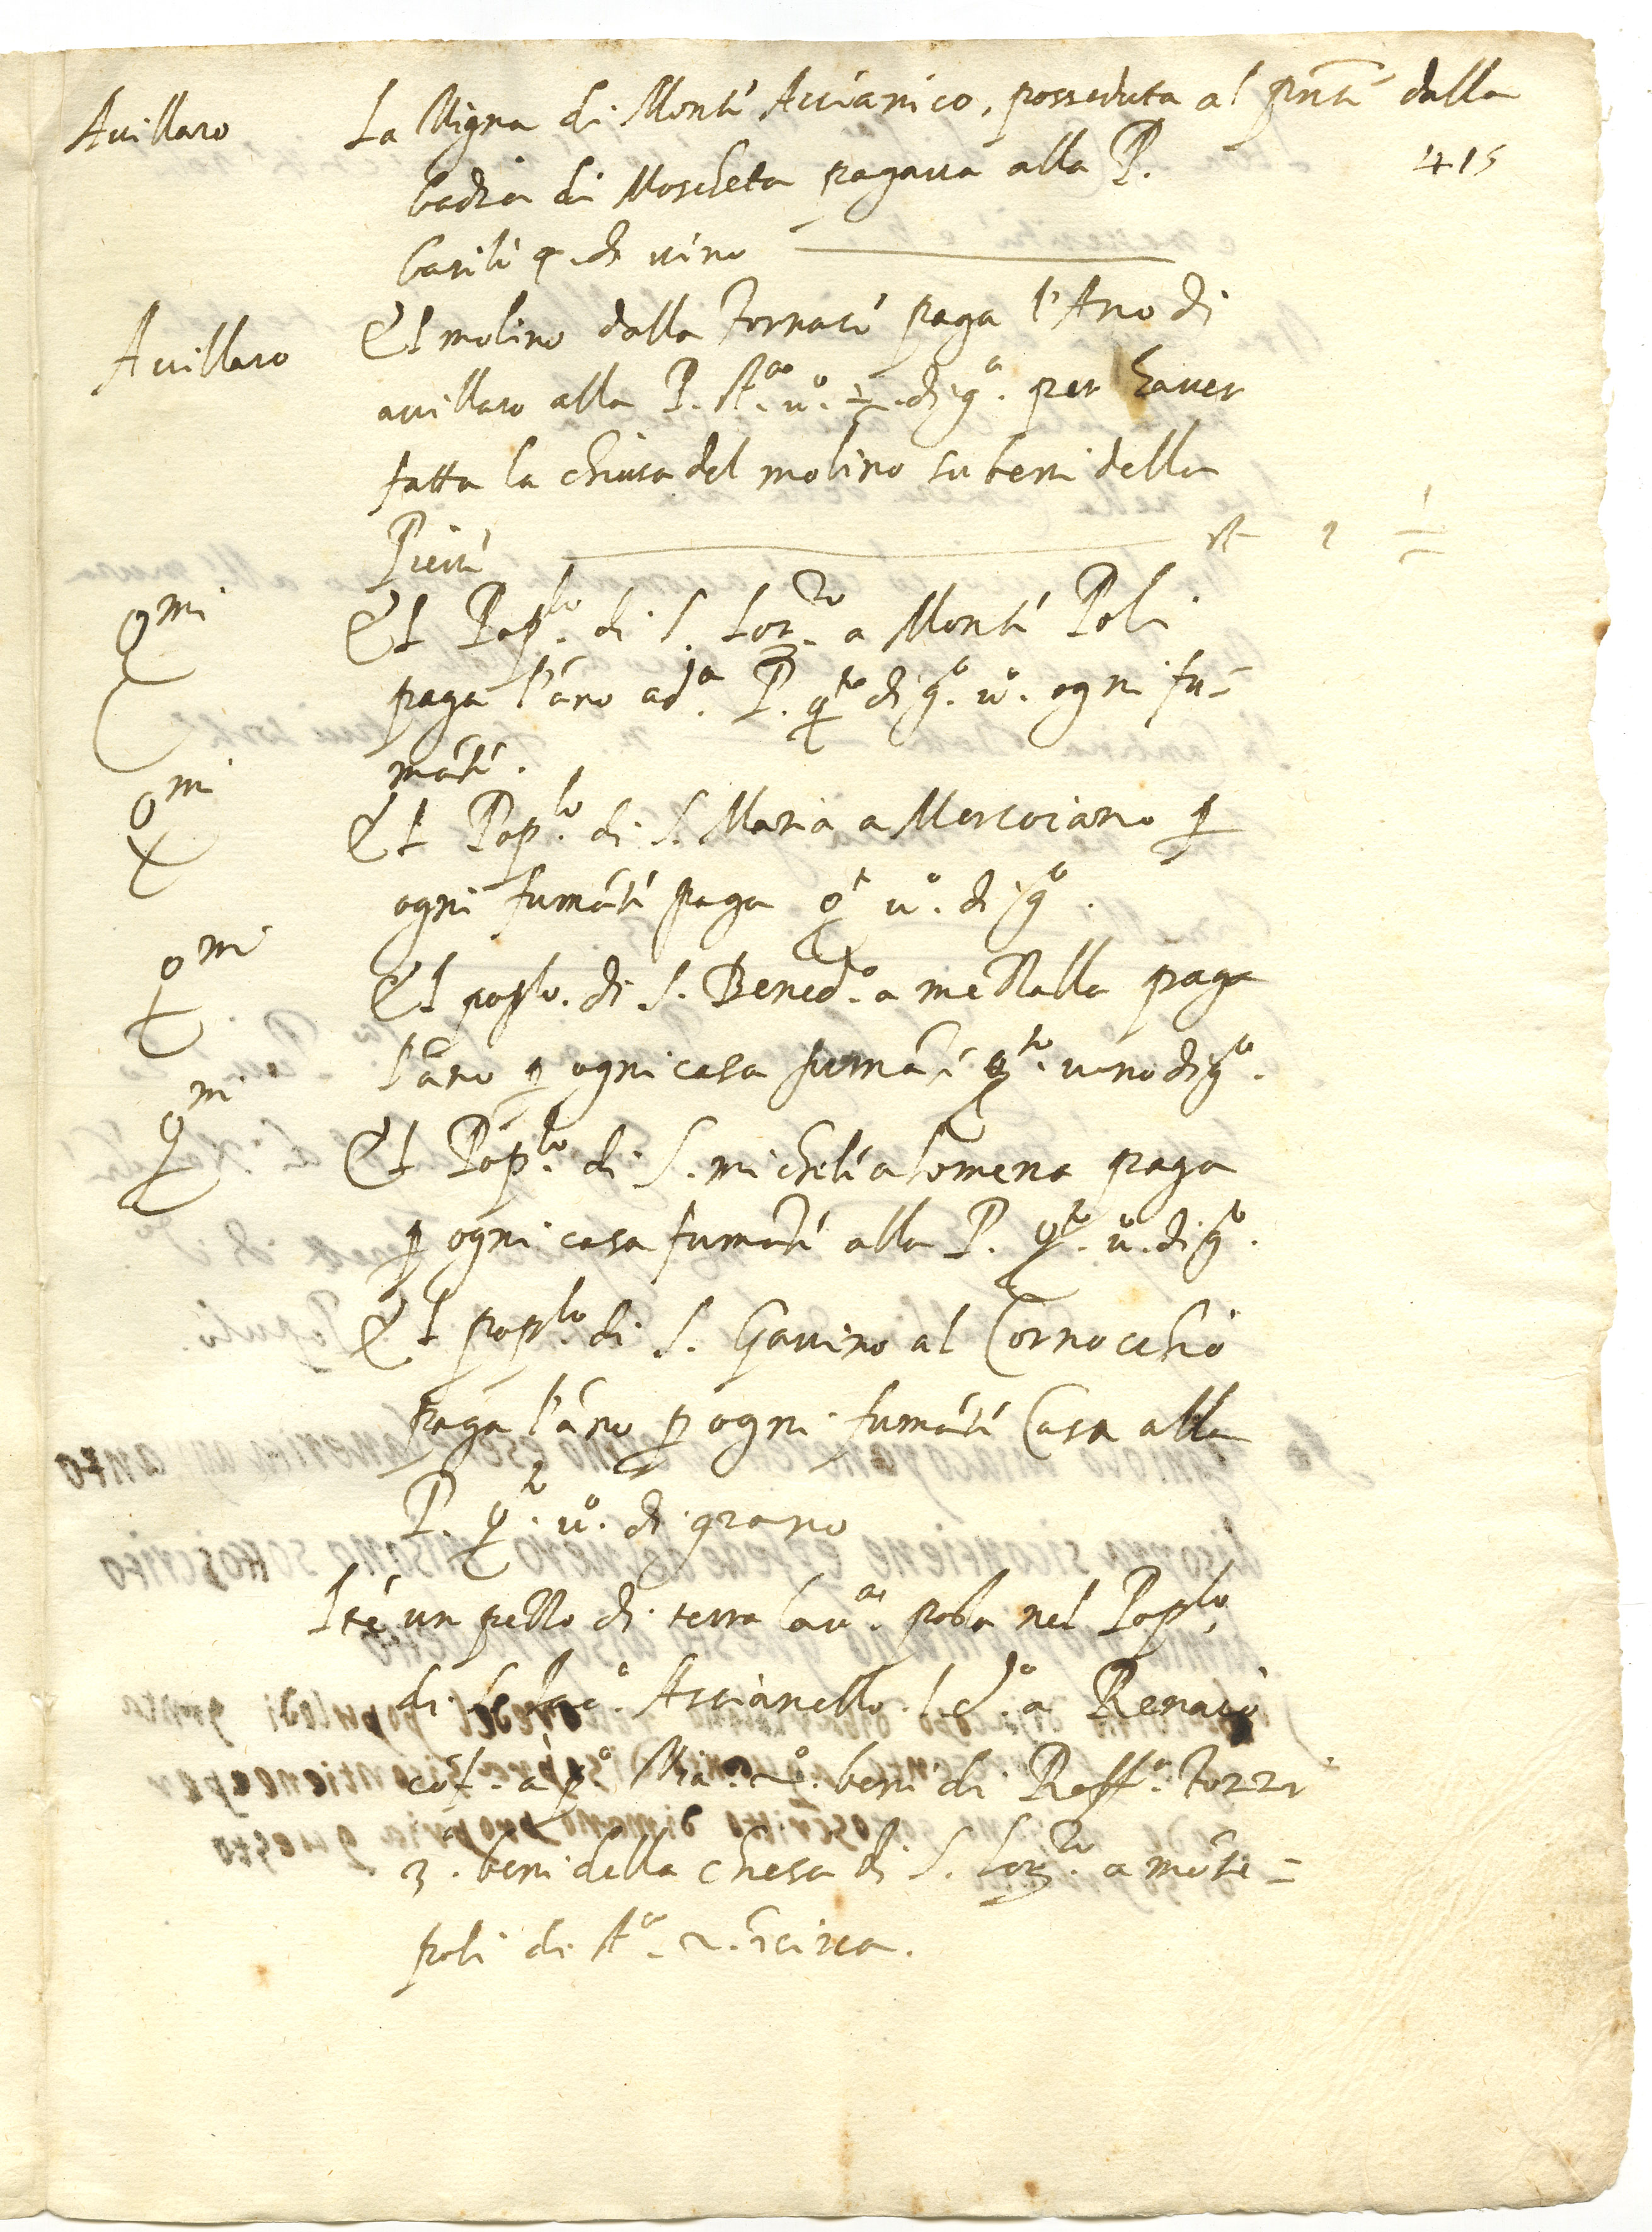 Avillaro
La Vigna di Monte Accianico, posseduta al pnte dalla
badia di Moscheta pagava alla P. 415
barili 4. di vino
Avillaro
El molino dalla fornace paga l'Ano di
avillaro alla P. sta. u.o ½. di g.o per haver
fatta la chiusa del molino su beni della
Pieve st 1 ½
q.mi
El Pop.lo di S. Lor.zo a Monte Poli
paga l'ano a d.a P. q.to di g.o u.o ogni fu=
māte.
q.mi
El Pop.lo di S. Maria a Mercoiano p
ogni fumāte paga q.o u.o di g.o
q.mi
El poplo. di S. Bened.o a mezzalla paga
l'ano p ogni casa fumāte q.to uno di g.o
q.mi
El Pop.lo di S. michele a lomena paga
p ogni casa fumāte alla P. q.to u.o di g.o
El pop.lo di S. Gavino al Cornocchio
paga l'ano p ogni fumāte Casa alla
P. q.to u.o di grano
Itē un pezzo di terra lav.a posta nel Poplo,
di S. Jac.o Ascianello l. d.o a Renaio
cōf. à p.o Via. 2.o beni di Raff.o Forzi
3.o beni della chiesa di S. Lor.zo a mōte=
poli di st.a 2. ī circa.